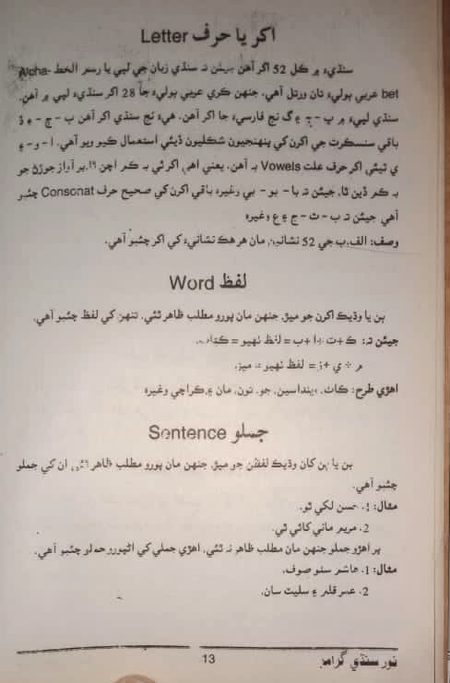 اکر يا حرف Letter
سنڌيءَ ۾ ڪل 52 اکر آهن جيئن ته سنڌي زبان جي لپي يا رسم الخط Alpha-
bet عربي ٻوليءَ تان ورتل آهي، جنهن ڪري عربي ٻوليءَ جا 28 اکر سنڌيءَ لپي ۾ آهن.
سنڌي لپيءَ ۾ پ - چ ۽ گ نج فارسيءَ جا اکر آهن. هيءَ نج سنڌي اکر آهن ٻ - ڄ -
باقي سنسڪرت جي اکرن کي پنهنجيون شڪليون ڏيئي استعمال ڪيو ويو آهي. ا - و - ۽
ي ٽيئي اکر حرف علت Vowels به آهن. يعني اهي اکر ئي به ڪم اچن ٿا، پر آواز جوڙڻ جو
به ڪم ڏين ٿا، جيئن ته با - بو - بي وغيره باقي اکرن کي صحيح حرف Consonat چئبو
آهي جيئن ته ب - ث - ج ۽ ع وغيره
وصف: الف، ب جي 52 نشانين، مان هر هڪ نشانيءَ کي اکر چئبو آهي.
لفظ Word
ٻن يا وڌيڪ اکرن جو ميڙ، جنهن مان پورو مطلب ظاهر ٿئي، تنهن کي لفظ چئبو آهي.
جيئن ته: ڪ + ت + ا + ب = لفظ ٺهيو = ڪتاب.
م + ي + ز = لفظ ٺهيو = ميز.
اهڙي طرح: کاٽ، جو، تون، مان ۽ ڪراچي وغيره
جملو Sentence
ٻن يا ٻن کان وڌيڪ لفظن جو ميڙ، جنهن مان پورو مطلب ظاهر ٿئي، ان کي جملو
چئبو آهي.
مثال: 1. حسن لکي ٿو.
2. مريم ماني کائي ٿي.
پر اهڙو جملو جنهن مان مطلب ظاهر نه ٿئي، اهڙي جملي کي اڻپورو جملو چئبو آهي.
مثال: 1. هاشم سٺو صوف.
2. عمر قلم ۽ سليٽ سان.
نور سنڌي گرامر
13